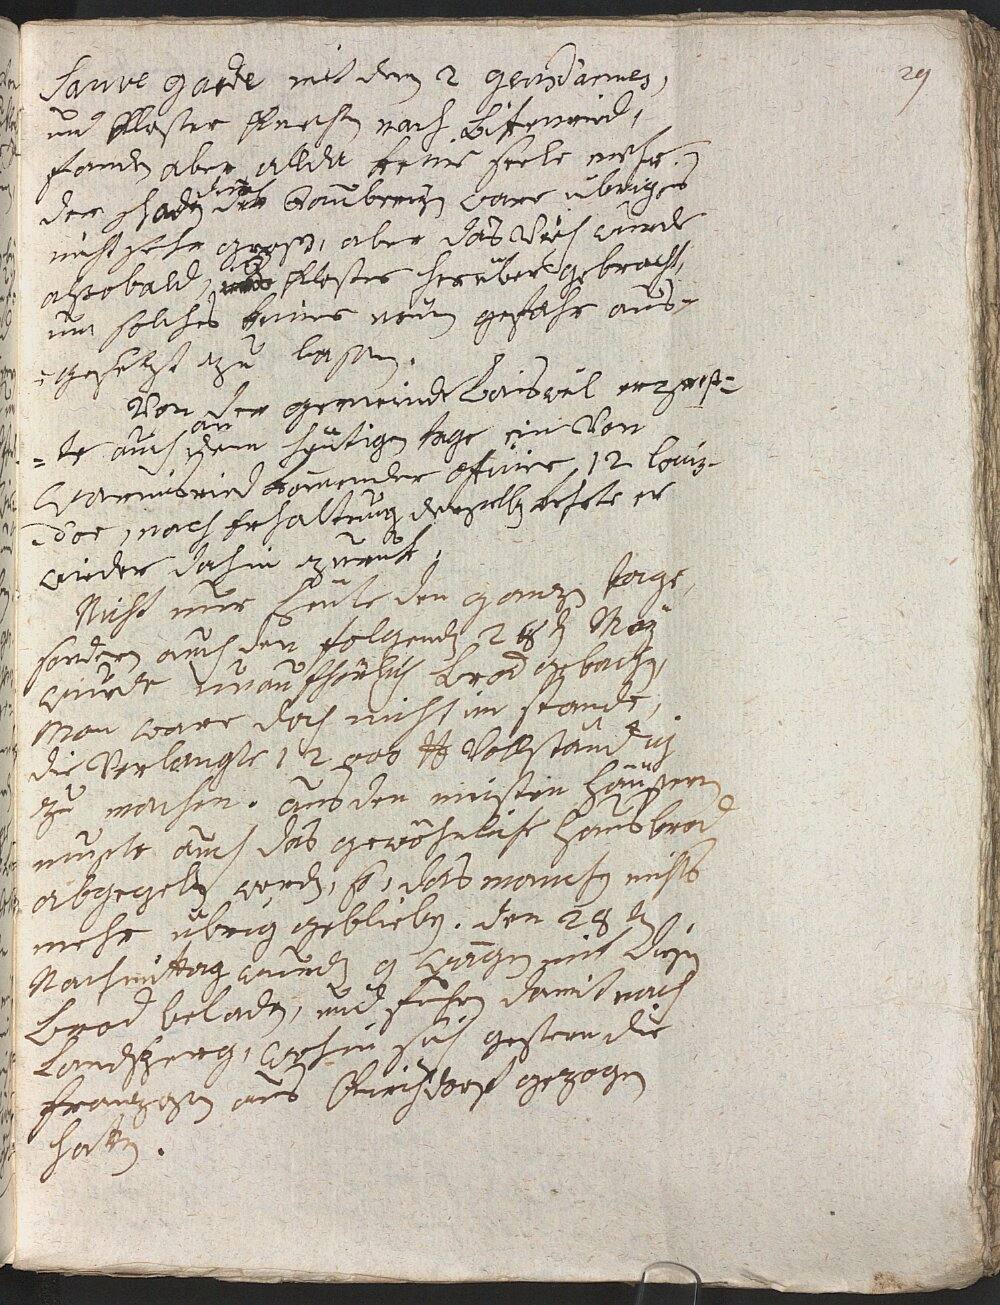 29
Sauve garde mit dem 2 gensdarmes,
und Kloster Knechten nach Bittenried,
fanden aber allda keine seele mehr.
der schaden durch Raubereyen ware übriges
nicht sehr gross, aber das Vieh wurde
alsobald, ins Kloster herüber gebracht,
um solches keiner neuen gefahr aus-
-gesetzt zu lassen.
Von der gemeinde Baisweil erpress-
-te auch an dem heutigen tage ein Von
kommender officier 12 louis-
-dor, nach Erhaltung derselben kehrte er
wieder dahin zurück.
Nicht nur heute den ganzen tage,
sondern auch den folgenden 28ten May
wurde unaufhörlich brod gebachen,
Man ware doch nicht im stande,
die Verlangte 12000 ℔ Vollständig
zu machen. aus den meisten häusern
muste auch das gewöhnliche hausbrod
abgegeben werden, so, das manchen nichts
mehr übrig geblieben. den 28ten
Nachmittag wurden 9 Wägen mit diesem
brod beladen, und fuhren damit nach
Landsberg, wohin sich gestern die
franzosen aus Kirchdorf gezogen
hatten.